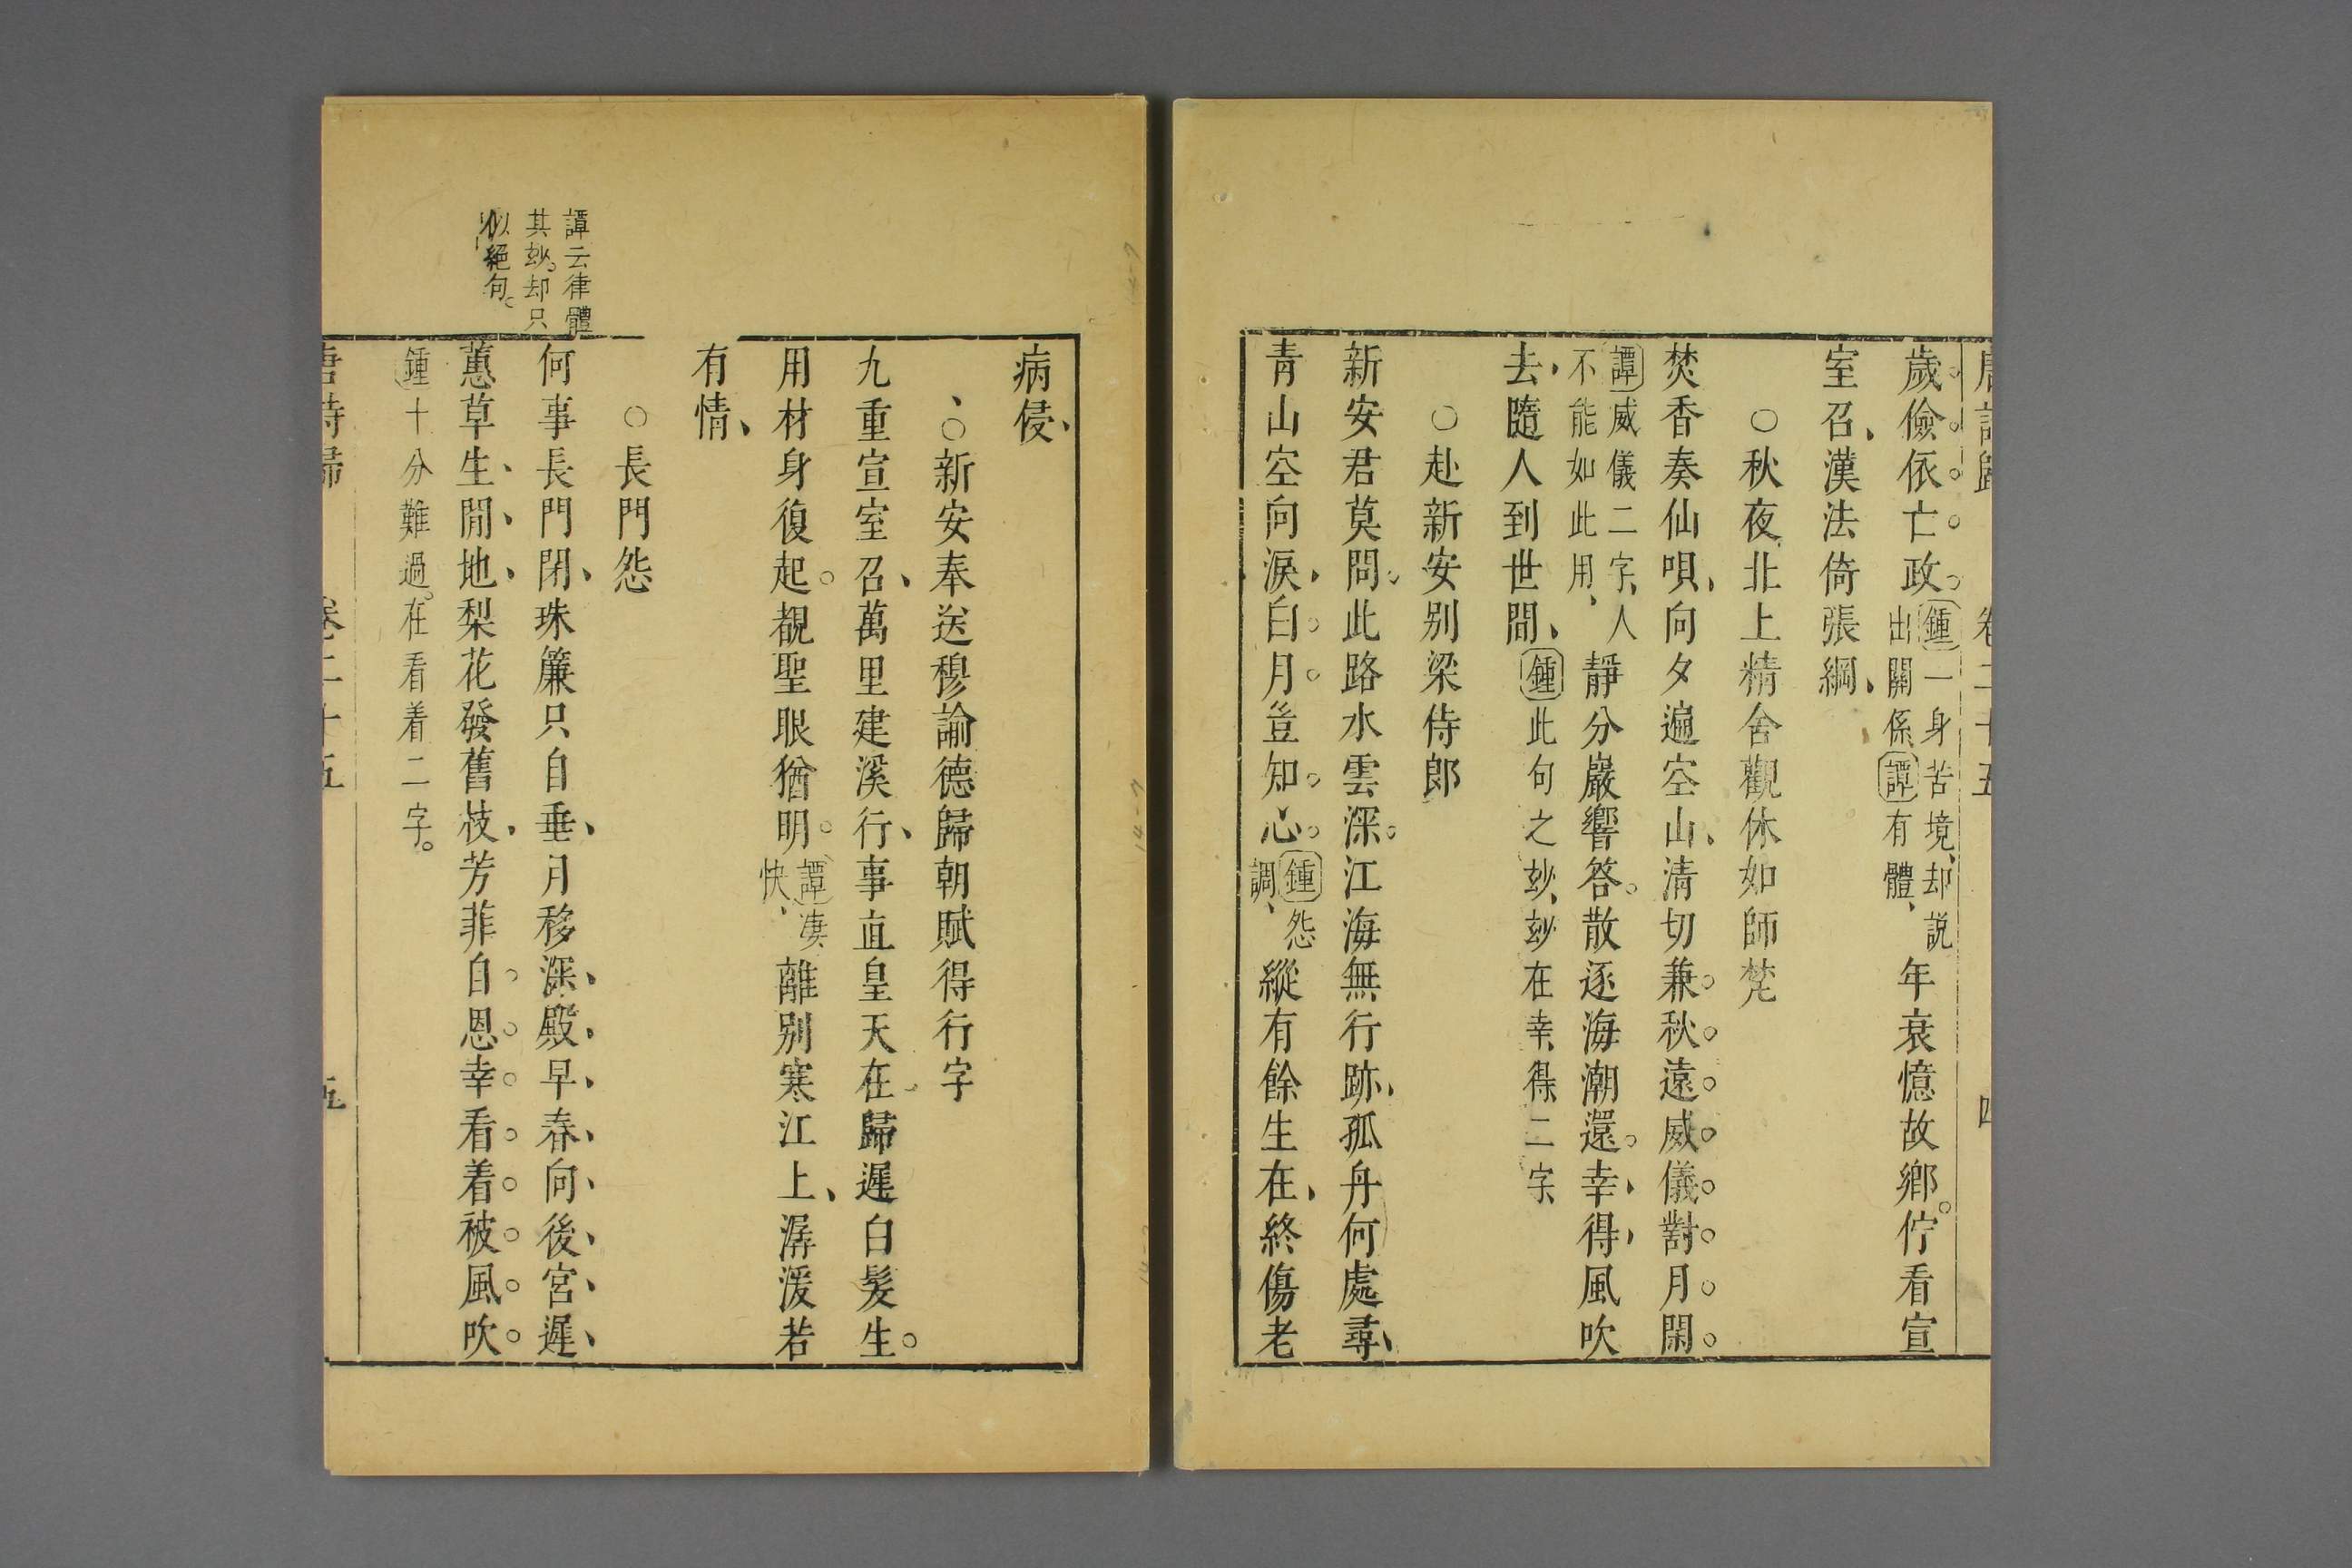 唐詩歸 卷二十五 四
歲儉依亡政。鍾一身苦境、却説出關係譚有體、年衰憶故鄉。佇看宣
室召、漢法倚張綱、
○秋夜北上精舍觀休如師梵
焚香奏仙唄、向夕遍空山、清切兼秋遠。威儀對月閑。
譚威儀二字、人不能如此用、靜分巖響答。散逐海潮還。幸得風吹
去、隨人到世間、鍾此句之玅、玅在幸得二字
○赴新安别梁侍郎
新安君莫問。此路水雲深。江海無行跡、孤舟何處尋、
青山空向淚、白月豈知心。鍾怨調、縱有餘生在、終傷老
病侵、
○新安奉送穆諭德歸朝賦得行字
九重宣室召、萬里建溪行、事直皇天在。歸遲白髮生。
用材身復起。覩聖眼猶明。譚悽快、離别寒江上、潺湲若
有情、
○長門怨
譚云律體
其玅。却只
似絕句。
何事長門閉、珠簾只自垂、月移深殿早、春向後宮遲、
蕙草生閒地、梨花發舊枝、芳菲自恩幸。看着被風吹。
鍾十分難過。在看着二字。
唐詩歸 卷二十五 五